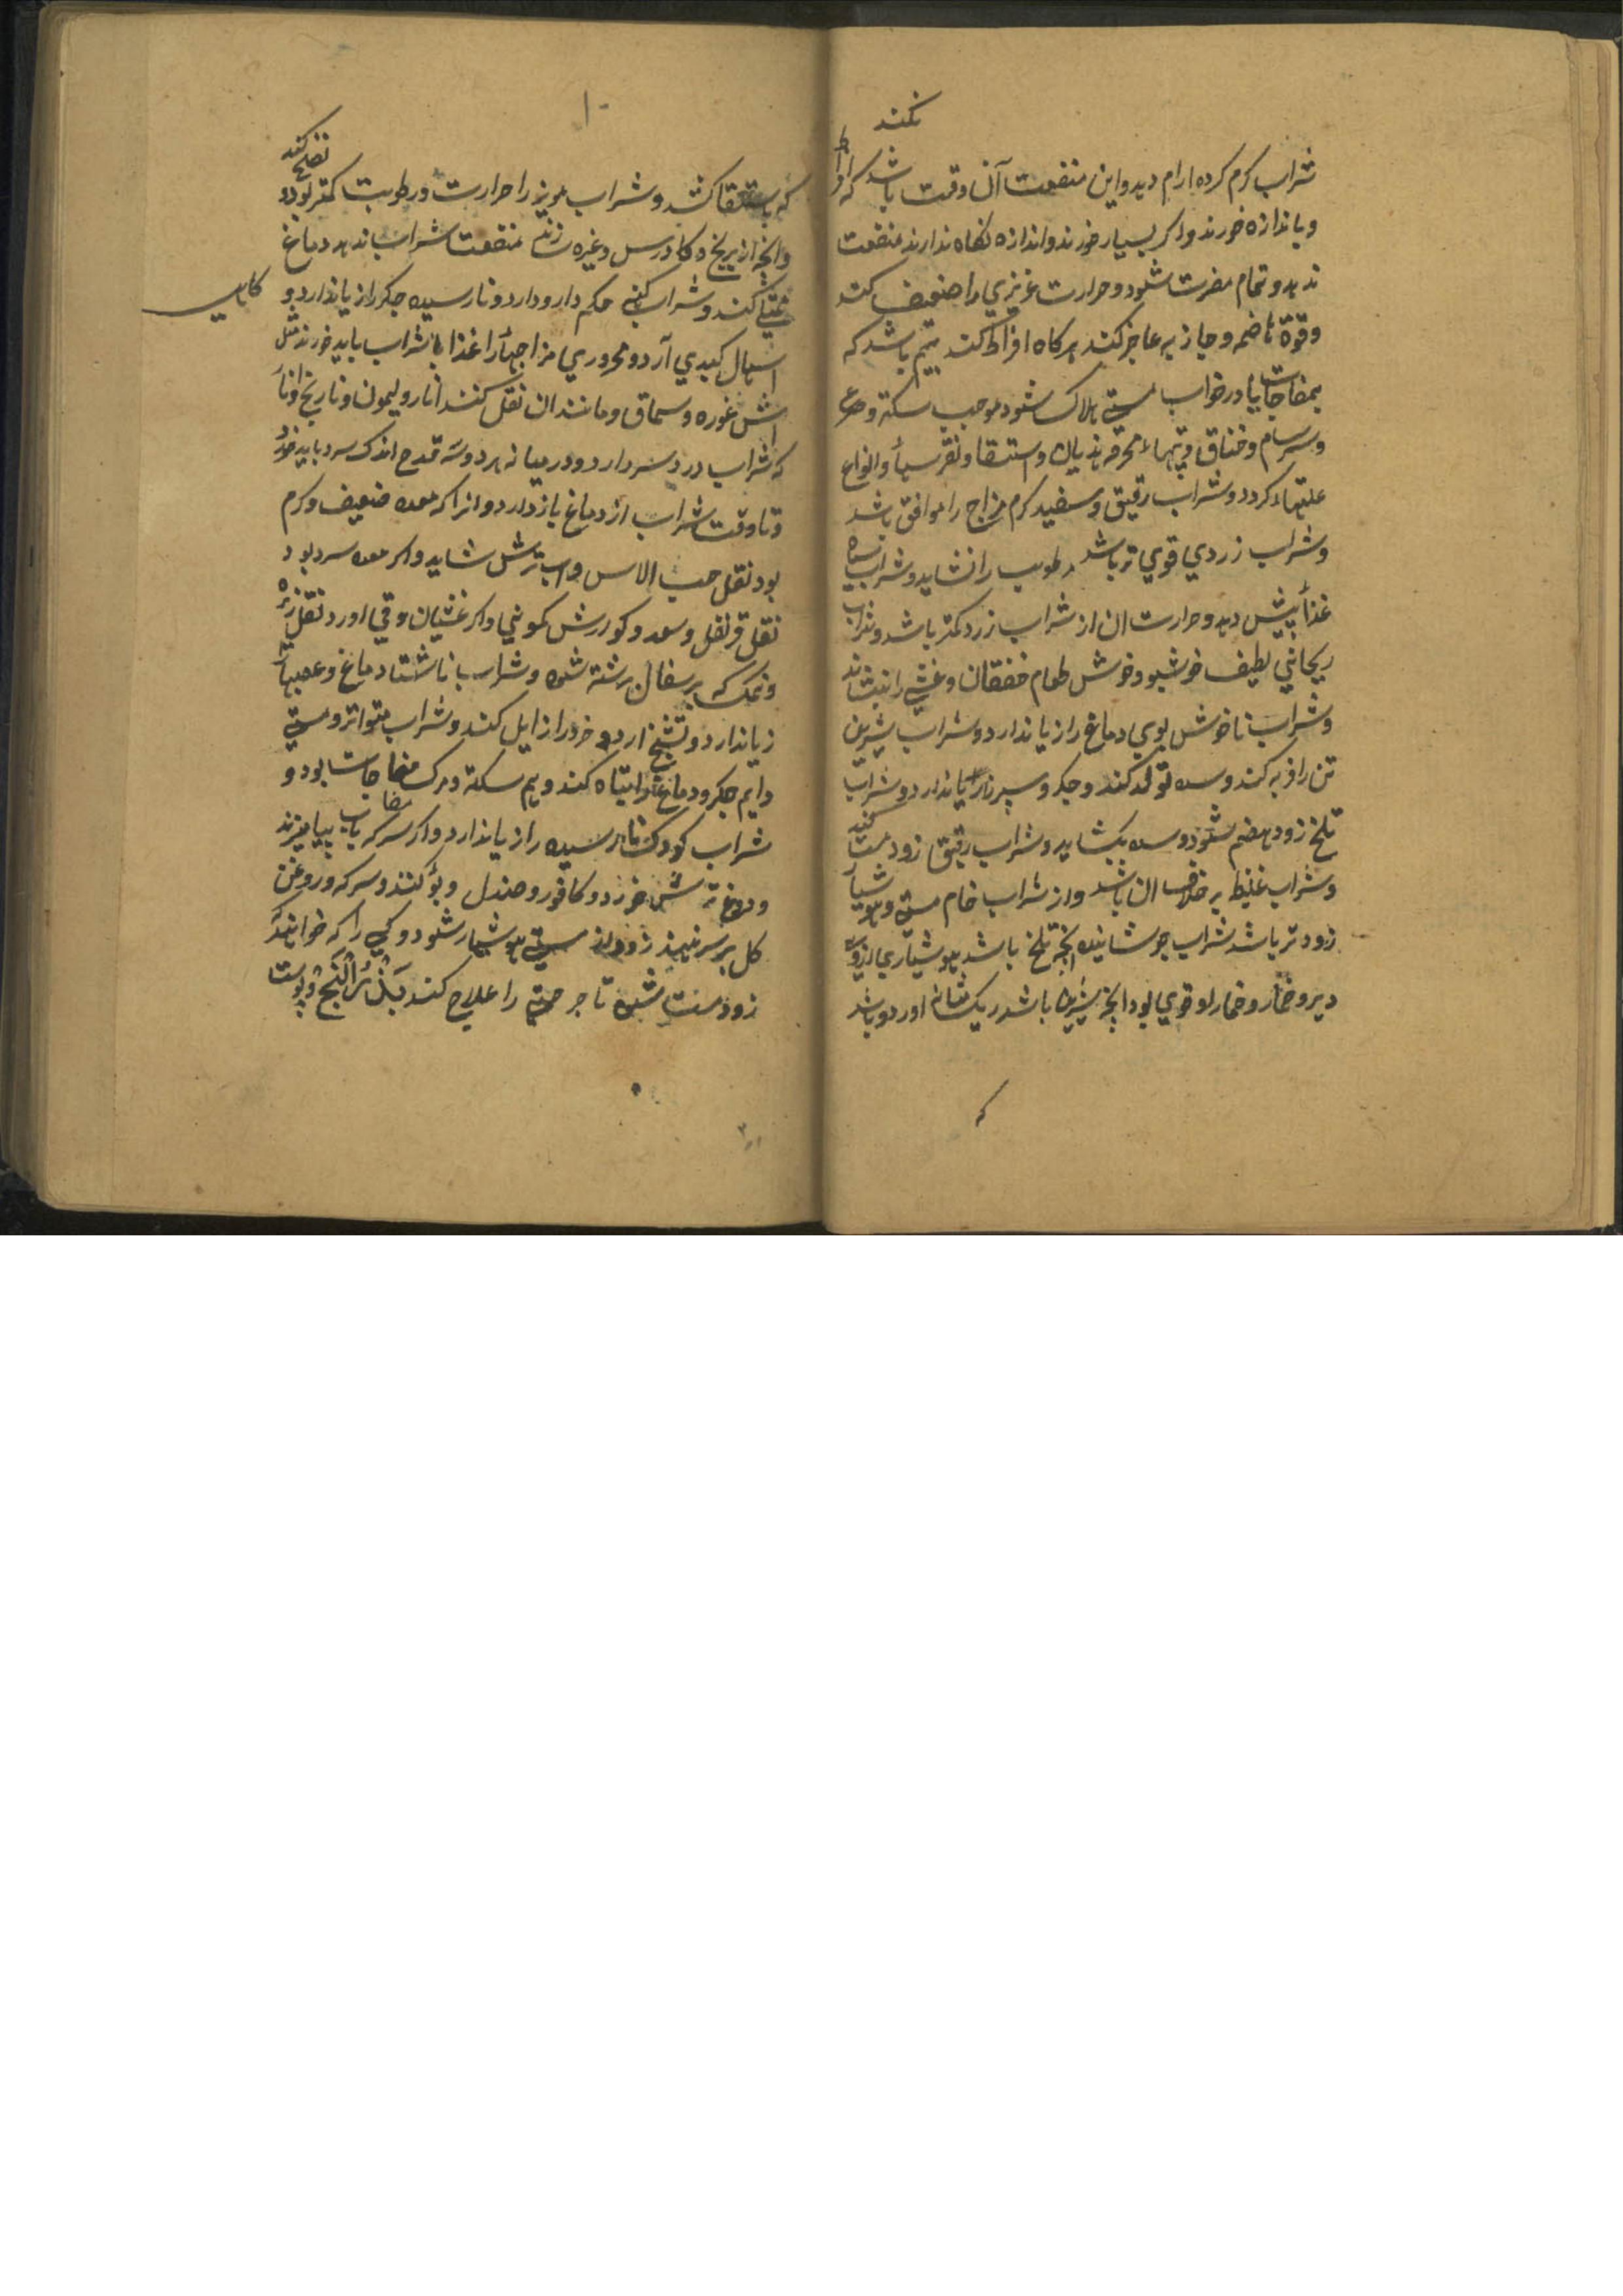 نکند
شراب کرم کرده ارام دهد و این منفعت آن وقت باشد که افراط
و باندازه خورند و اکر بسیار خورند و اندازه نکاه ندارند منفعت
ندهد و تمام مضرت شود و حرارت غریزي را ضعیف کند
و قوة هاضمه و جاذبه عاجز کند هرکاه افراط کند بیم باشد که
بمفاجات یا در خواب مستي هلاک شود موجب سکته و صرع
و سرسام و خناق و تبهاء محرقه هذیان و استسقا و نقرس و انواع
علتهاء کردد و شراب رقیق و سفید کرم مزاج را موافق باشد
و شراب زردي قوي تر باشد مرطوب را نشاید و شراب سیاه
غذا بیش دهد و حرارت ان از شراب زرد کمتر باشد و شراب
ریحاني لطیف خوشبو و خوش طعام خفقان و غشي را بنشاند
و شراب ناخوش بوي دماغ را زیاندارد و شراب شیرین
تن را فربه کند و سده تولد کند و جکر و سپرز را زیاندارد و شراب
تلخ زود هضم شود و سده بکشاید و شراب رقیق زود مست کند
و شراب غلیظ بر خلاف ان باشد و از شراب خام مستي و هوشیار
زودتر باشد شراب جوشانیده انچه تلخ باشد هوشیاري ازو
دیر و خمار و خمار او قوي بود انچه شیرین باشد ریک مثانه اورد و باشد
که
۱۰
که باستسقا کشد و شراب مویز را حرارت و رطوبت کمتر بود و
نضج کند
وانچه از برنج و کاورس و غیره زنند منفعت شراب ندهد دماغ
ممتلي کند و شراب کهنه حکم دارو دارد و نارسیده جکر را زیاندارد و
اسهال کبدي آرد و محروري مزاجها را غذا با شراب باید خورند مثل
اش غوره و سماق و مانند ان نقل کنند انار و لیمون و نارنج و انرا
که شراب درد سر دارد و در میانه هر دو سه قدح اندک سرد باید خورد
تا وقت شراب از دماغ باز دارد و انرا که معده ضعیف و کرم
بود نقل حب الاس و اب ترش شاید و اکر معده سرد بود
نقل قرنفل و سعد و کوارش کموني و اکر غشیان و قي اورد نقل زیره
و نمک که بر سفال برشته شود و شراب ناشتا دماغ و عصبها را
زیاندارد و تشنج ارد و خرد را زایل کند و شراب متواتر و مستي
دایم جکر و دماغ را تباه کند و بیم سکته و مرک مفاجات بود و
شراب کودک نارسیده را زیاندارد و اکر سرکه باب بیامیزند
و دوغ ترش خورد و کافور و صندل و بو کنند و سرکه و روغن
کل بر سر نهند زود از مستي هوشیار شود و کسي را که خواهند که
زود مست شود تا جراحتي را علاج کند بذر البنج و پوست